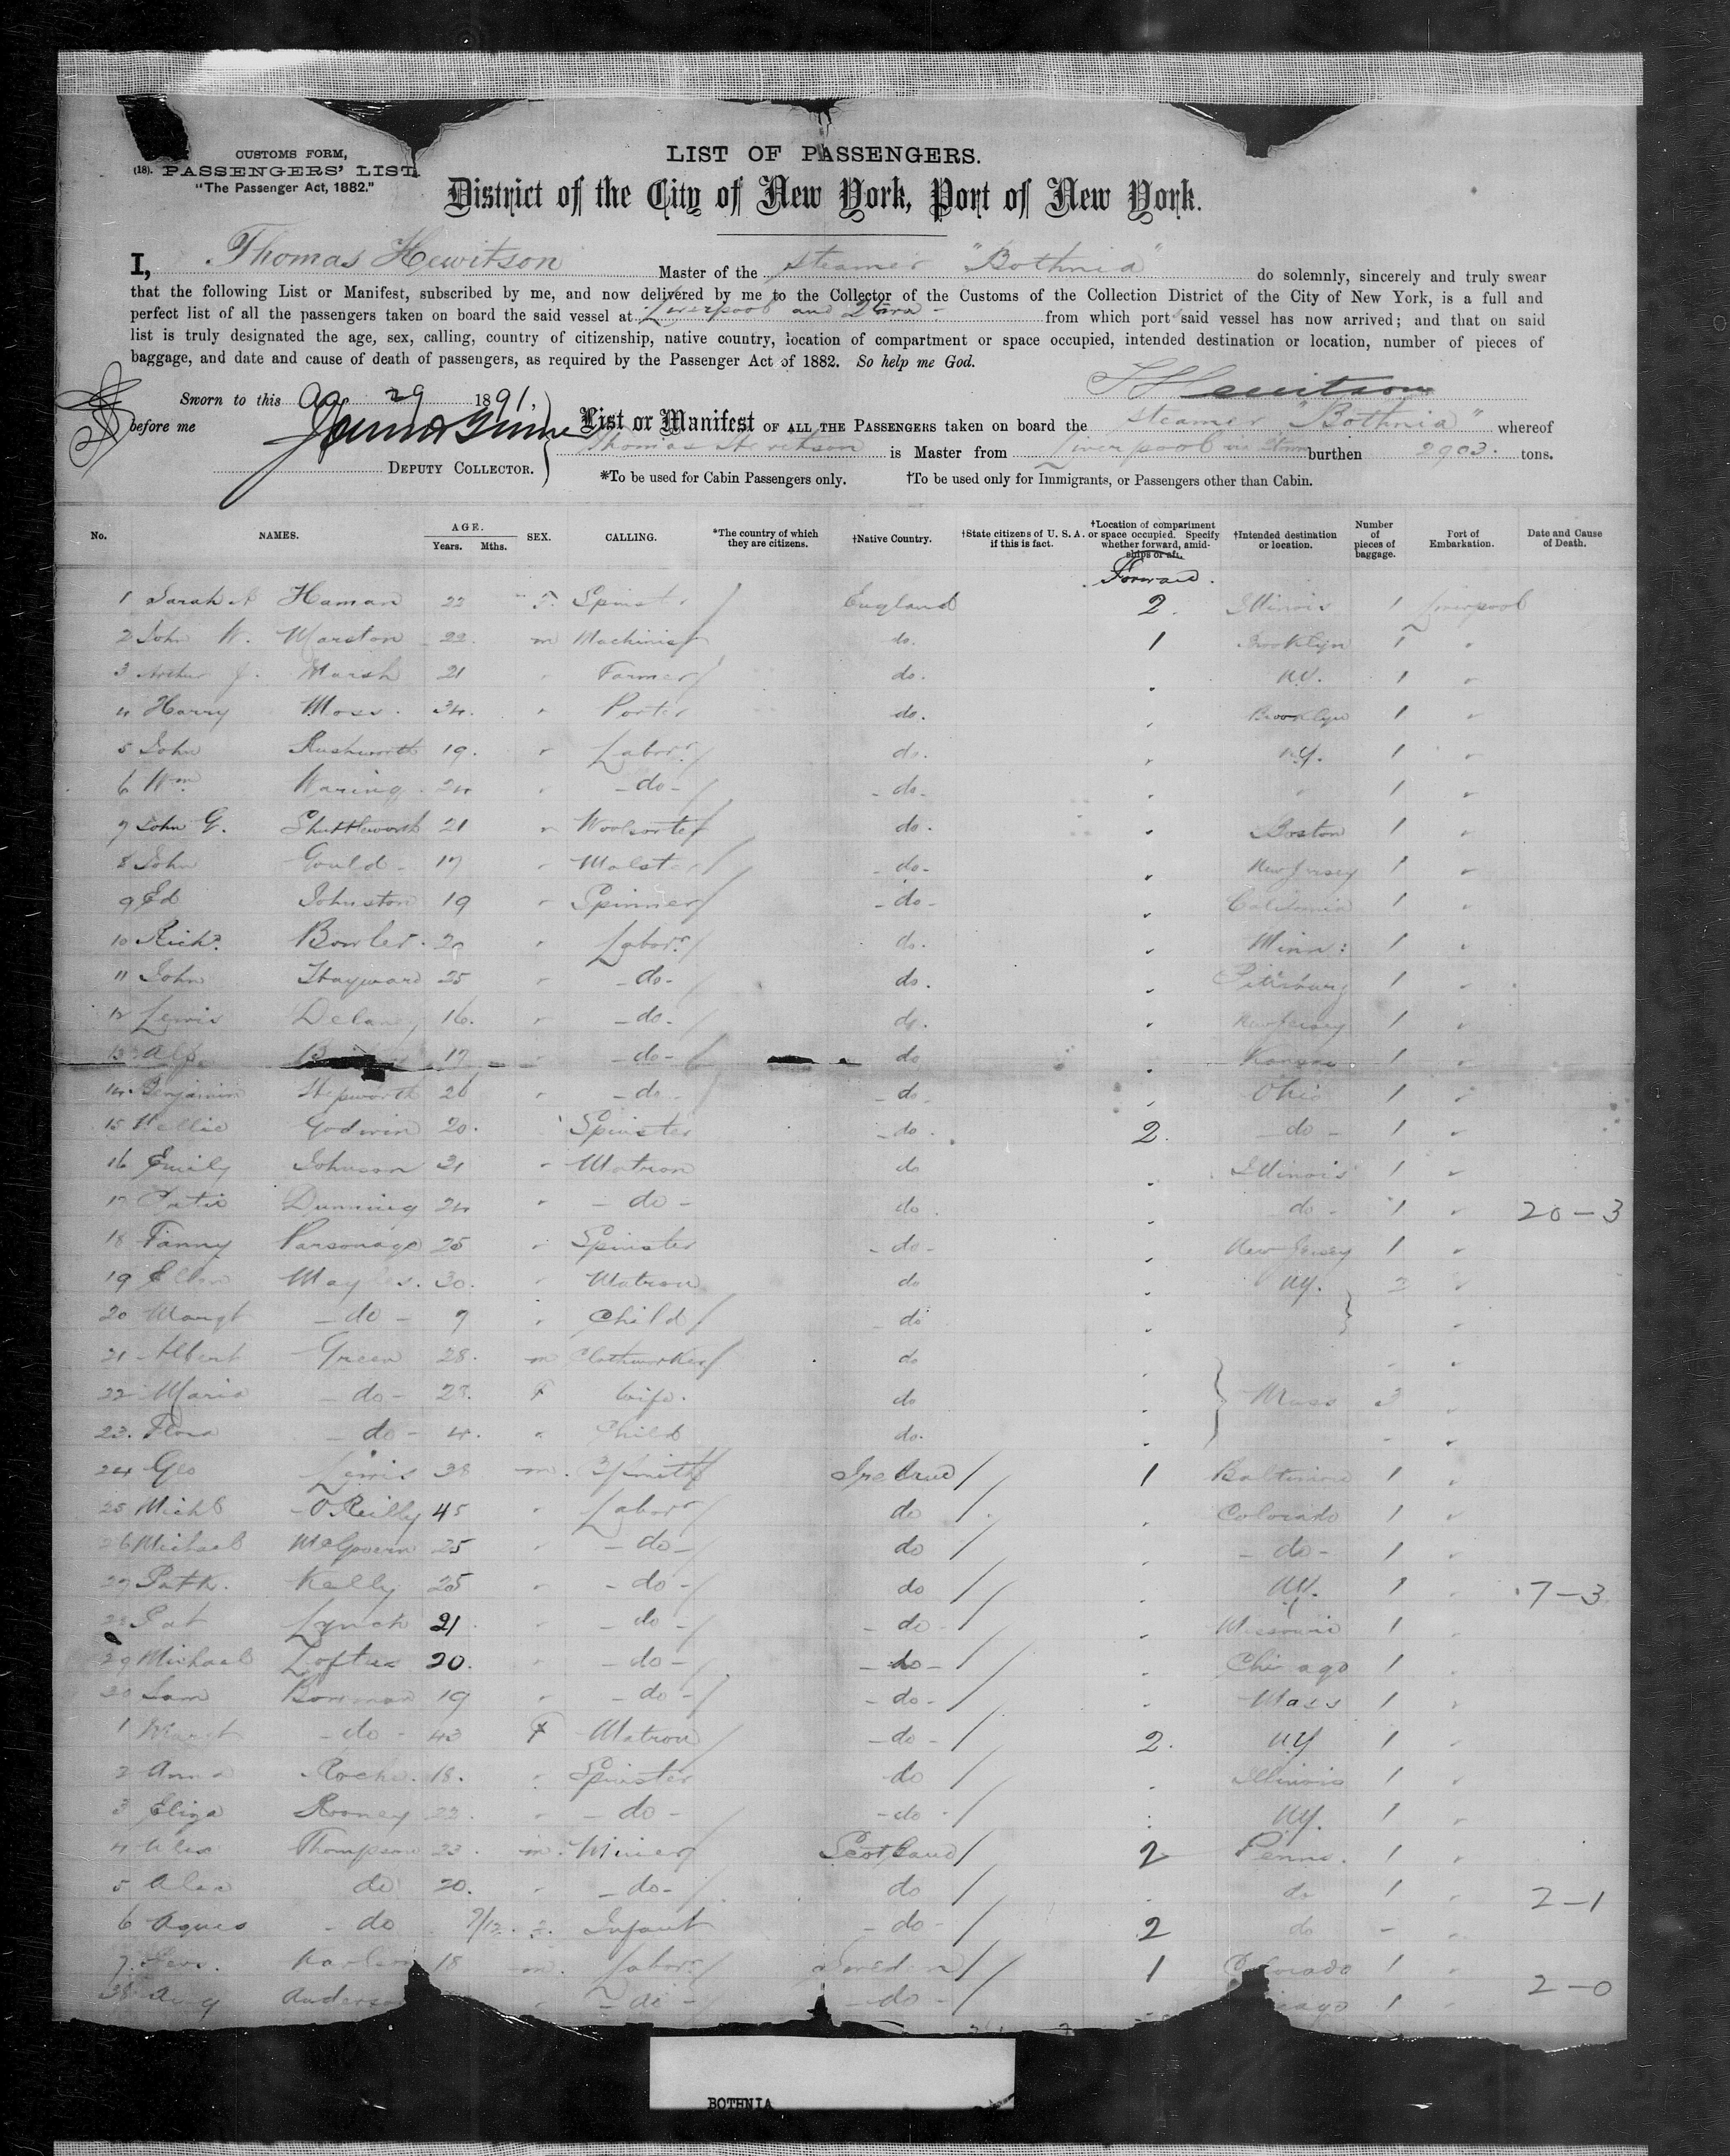 CUSTOMS FORM,
(18). PASSENGERS' LIST.
"The Passenger Act, 1882."
LIST OF PASSENGERS.
District of the City of New York, Port of New York.
I, Thomas Hewitson Master of the steamer "Bothnia" do solemnly, sincerely and truly swear
that the following List or Manifest, subscribed by me, and now delivered by me to the Collector of the Customs of the Collection District of the City of New York, is a full and
perfect list of all the passengers taken on board the said vessel at Liverpool and from which port said vessel has now arrived; and that on said
list is truly designated the age, sex, calling, country of citizenship, native country, location of compartment or space occupied, intended destination or location, number of pieces of
baggage, and date and cause of death of passengers, as required by the Passenger Act of 1882. So help me God.
T Hewitson
Sworn to this Ap 29 1891,
before me
DEPUTY COLLECTOR.
List or Manifest OF ALL THE PASSENGERS taken on board the steamer "Bothnia" whereof
Thomas Hewitson is Master from Liverpool burthen 2903. tons.
*To be used for Cabin Passengers only. †To be used only for Immigrants, or Passengers other than Cabin.
No. NAMES. AGE. Years. Mths. SEX. CALLING. *The country of which they are citizens. †Native Country. †State citizens of U. S. A. if this is fact. †Location of compartment or space occupied. Specify whether forward, amidships or aft. †Intended destination or location. Number of pieces of baggage. Port of Embarkation. Date and Cause of Death.
Forward.
1 Sarah A Haman 22 F. Spinster England 2. Illinois 1 Liverpool
2 John W. Marston 22. m Machinist do. 1 Brooklyn 1 "
3 Arthur J. Marsh 21 " Farmer do. " NY. 1 "
4 Harry Moss. 34. " Porter do. " Brooklyn 1 "
5 John Rushworth 19. " Labor do. " NY. 1 "
6 Wm Waring 24 " - do - - do - " " 1 "
7 John G. Shuttleworth 21 " Woolsorter do. " Boston 1 "
8 John Gould - 17 " Malster - do - " New Jersey 1 "
9 Ed Johnston 19 " Spinner - do - " California 1 "
10 Richd. Bowler. " Labor do. " Minn: 1 "
11 John Hayward 25 " - do - do. " Pittsburg 1 "
12 Lewis Delaney 16. " - do - do. " New Jersey 1 "
13 Alf. 17 " - do - do " Kansas 1 "
14 Benjamin Hepworth 26 " - do - - do - " Ohio 1 "
15 Nellie Godwin 20. Spinster - do - 2. - do - 1 "
16 Emily Johnson 31 " Matron do " Illinois 1 "
17 Dunning 24 " - do - do. " - do - 1 " 20 - 3
18 Fanny Parsonage 25 " Spinster - do - " New Jersey 1 "
19 Ellen 30. " Matron do " NY. 2 "
20 Margt - do - 9 " Child do " "
21 Albert Green 28. m Clothworker do " "
22 Maria - do - F Wife. do " Mass 3 "
23. Flora - do - 4. " Child do. " "
24 Geo Lewis 38 m. Ireland 1 Baltimore 1 "
25 Michl O'Reilly 45 " Labor do " Colorado 1 "
26 Michael McGovern 25 " - do - do " - do - 1 "
27 Patk. Kelly 25 " - do - do " NY. 1 " 7 - 3
28 Pat Lynch 21 " - do - - do - " Missouri 1 "
29 Michael Loftus 20. " - do - - do - " Chicago 1 "
30 Sam Bowman 19 " - do - - do - " Mass 1 "
1 Margt - do - 43 F Matron - do - 2. NY 1 "
2 Anna Roche. 18. " Spinster do " Illinois 1 "
3 Eliza Rooney 22. " - do - - do - " NY. 1 "
4 Alex Thompson 23. m. Miner Scotland 2 Penna. 1 "
5 do 20. " - do - do " do 1 " 2 - 1
6 Agnes - do 7/12. F. Infant - do - 2 do - "
7. 18 m. Labor Sweden 1 Colorado 1 "
38 Aug " - do - - do - " 1 " 2 - 0
BOTHNIA